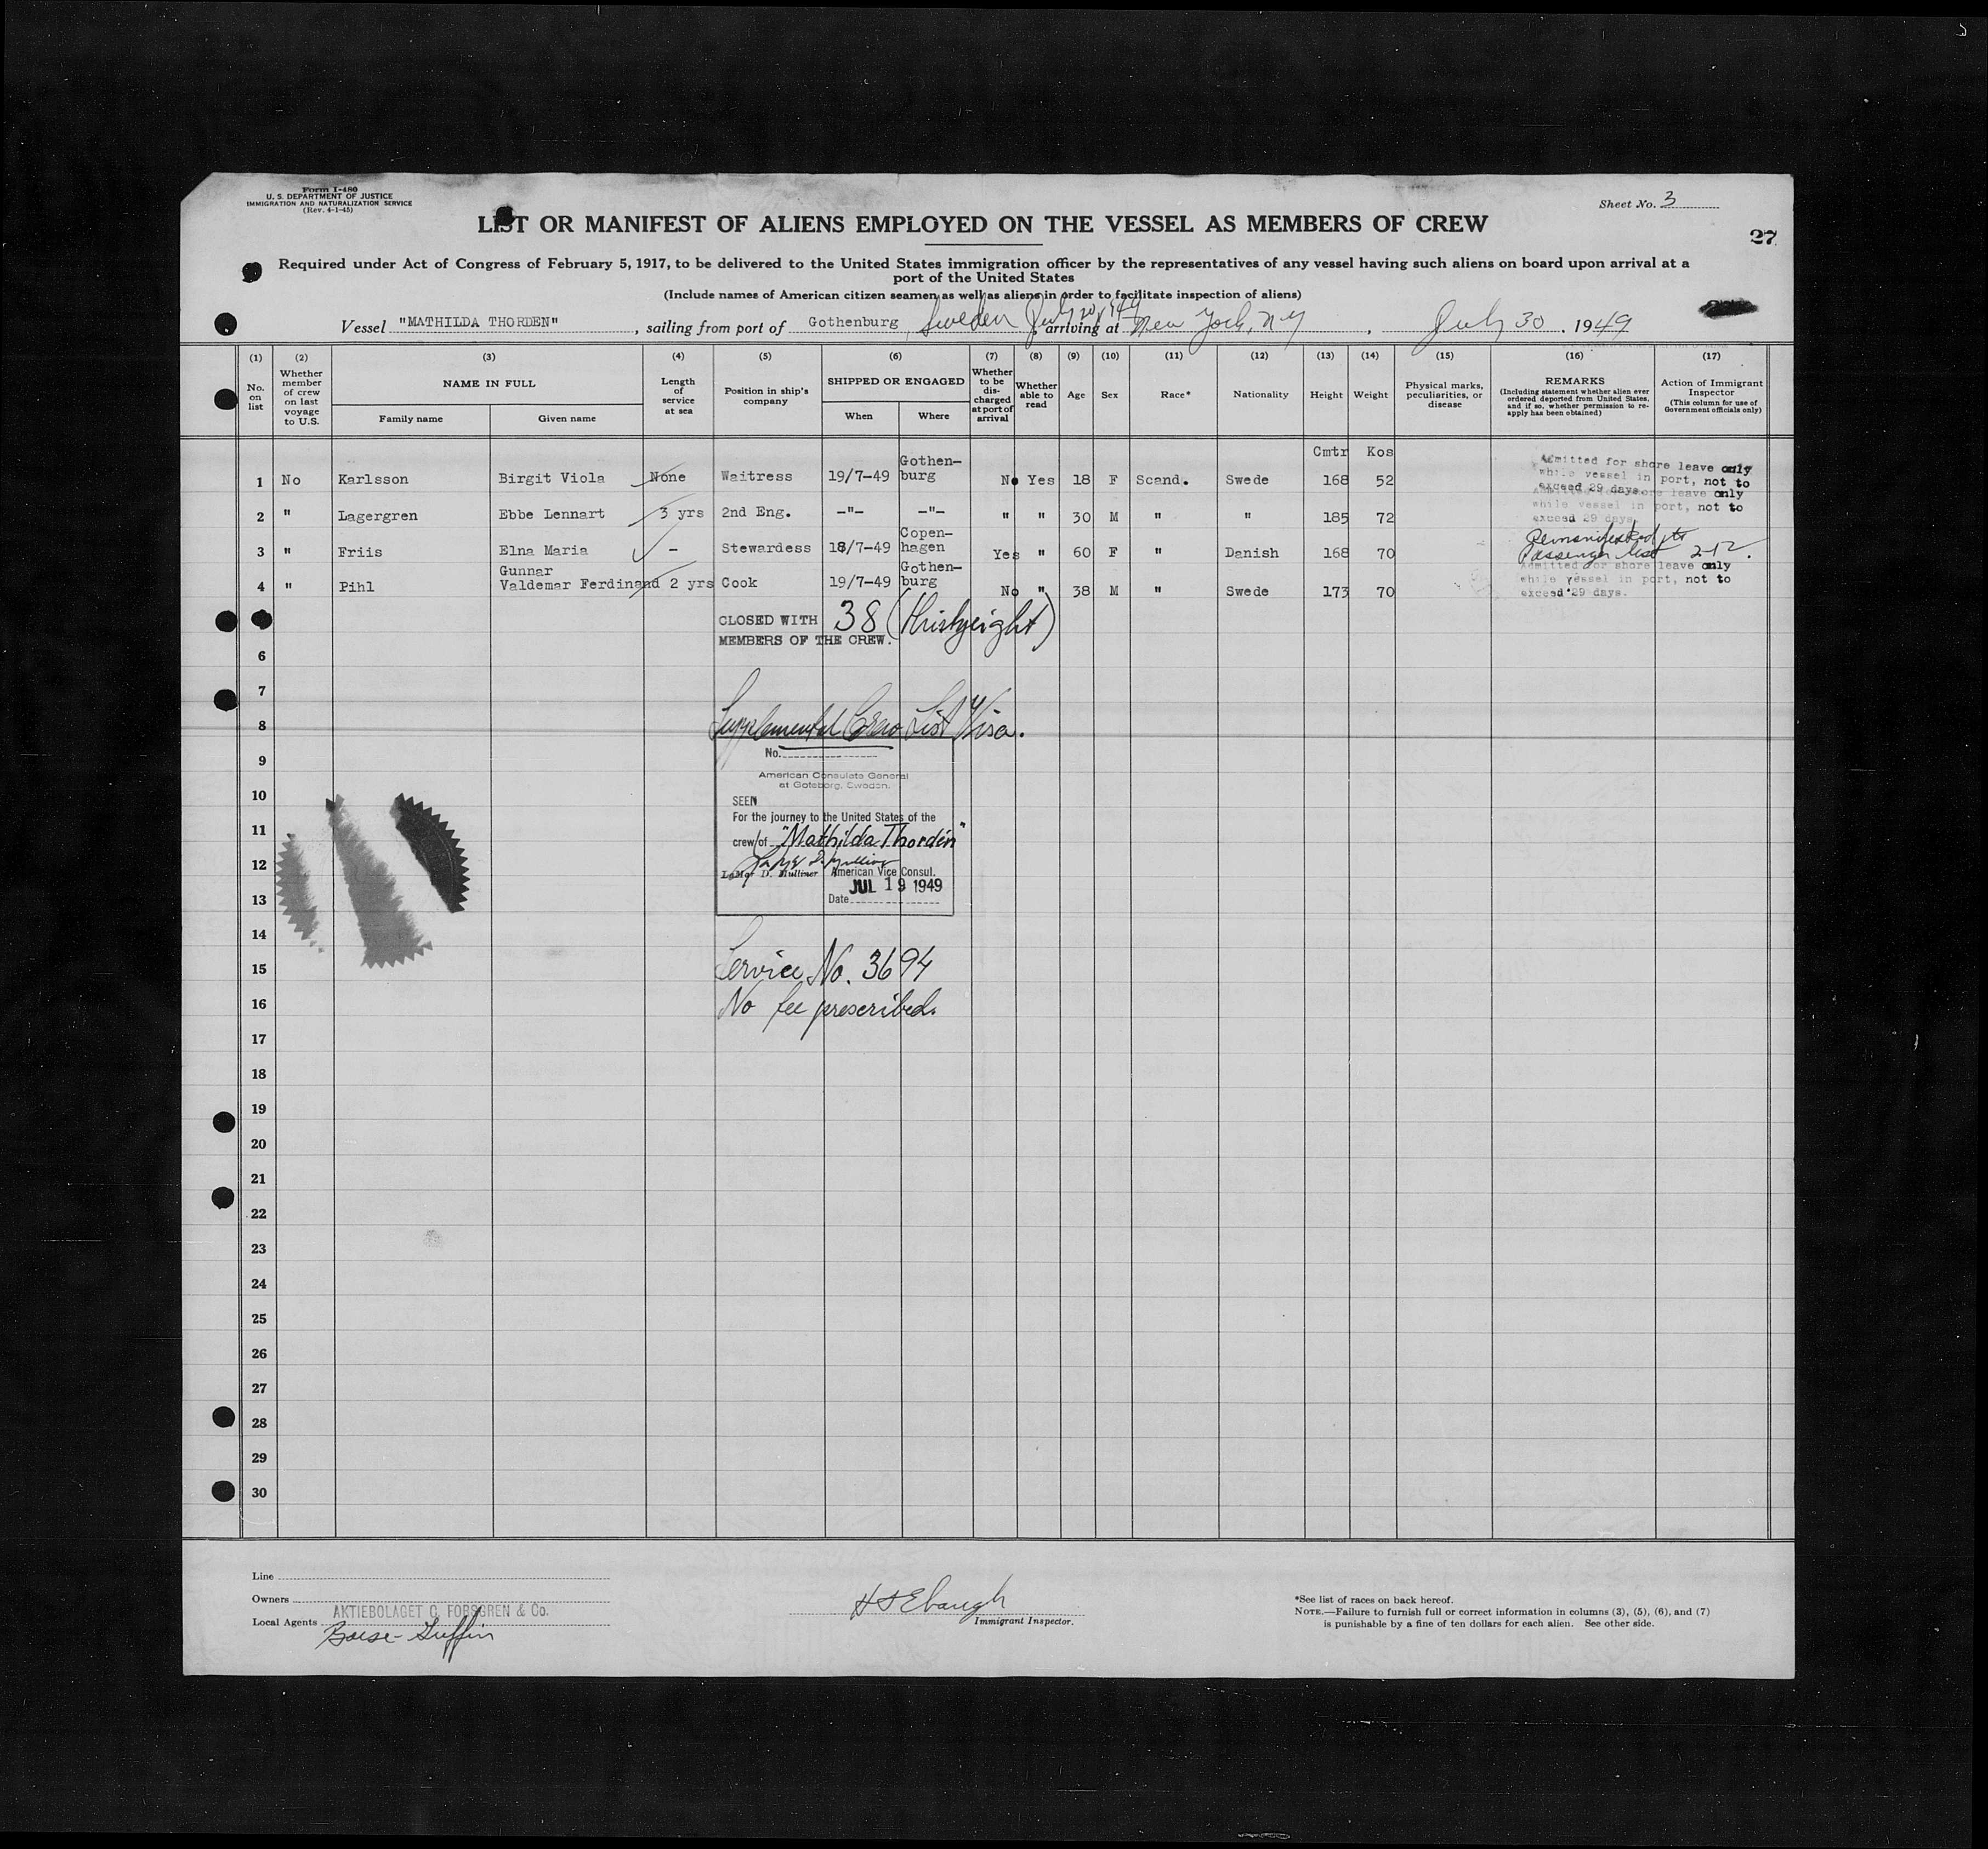 Form I-480
U. S. DEPARTMENT OF JUSTICE
IMMIGRATION AND NATURALIZATION SERVICE
(Rev. 4-1-45)
Sheet No. 3
27
LIST OR MANIFEST OF ALIENS EMPLOYED ON THE VESSEL AS MEMBERS OF CREW
Required under Act of Congress of February 5, 1917, to be delivered to the United States immigration officer by the representatives of any vessel having such aliens on board upon arrival at a
port of the United States
(Include names of American citizen seamen as well as aliens in order to facilitate inspection of aliens)
Vessel "MATHILDA THORDEN", sailing from port of Gothenburg, Sweden July 20, 1949, arriving at New York, NY, July 30, 1949
(1) (2) (3) (4) (5) (6) (7) (8) (9) (10) (11) (12) (13) (14) (15) (16) (17)
No. on list
Whether member of crew on last voyage to U.S.
NAME IN FULL
Family name
Given name
Length of service at sea
Position in ship's company
SHIPPED OR ENGAGED
When
Where
Whether to be discharged at port of arrival
Whether able to read
Age
Sex
Race*
Nationality
Height
Weight
Physical marks, peculiarities, or disease
REMARKS
(Including statement whether alien ever ordered deported from United States, and if so, whether permission to reapply has been obtained)
Action of Immigrant Inspector
(This column for use of Government officials only)
Cmtr Kos
1 No Karlsson Birgit Viola None Waitress 19/7-49 Gothen-burg No Yes 18 F Scand. Swede 168 52 Admitted for shore leave only while vessel in port, not to exceed 29 days.
2 " Lagergren Ebbe Lennart 3 yrs 2nd Eng. -"- -"- " " 30 M " " 185 72 Admitted for shore leave only while vessel in port, not to exceed 29 days.
3 " Friis Elna Maria - Stewardess 18/7-49 Copen-hagen Yes " 60 F " Danish 168 70 Remanifested Passenger list 2-12.
4 " Pihl Gunnar Valdemar Ferdinand 2 yrs Cook 19/7-49 Gothen-burg No " 38 M " Swede 173 70 Admitted for shore leave only while vessel in port, not to exceed 29 days.
CLOSED WITH 38 (thirtyeight)
MEMBERS OF THE CREW.
6
7
Supplemental Crew List Visa.
8
No.
9
American Consulate General
at Goteborg, Sweden.
10
SEEN
For the journey to the United States of the
11
crew of "Mathilda Thorden"
12
LaMar D. Mulliner American Vice Consul.
JUL 19 1949
13
Date
14
Service No. 3694
15
No fee prescribed.
16
17
18
19
20
21
22
23
24
25
26
27
28
29
30
Line
Owners
AKTIEBOLAGET C. FORSGREN & Co.
Local Agents
H S Ebaugh
Immigrant Inspector.
*See list of races on back hereof.
NOTE.—Failure to furnish full or correct information in columns (3), (5), (6), and (7)
is punishable by a fine of ten dollars for each alien. See other side.